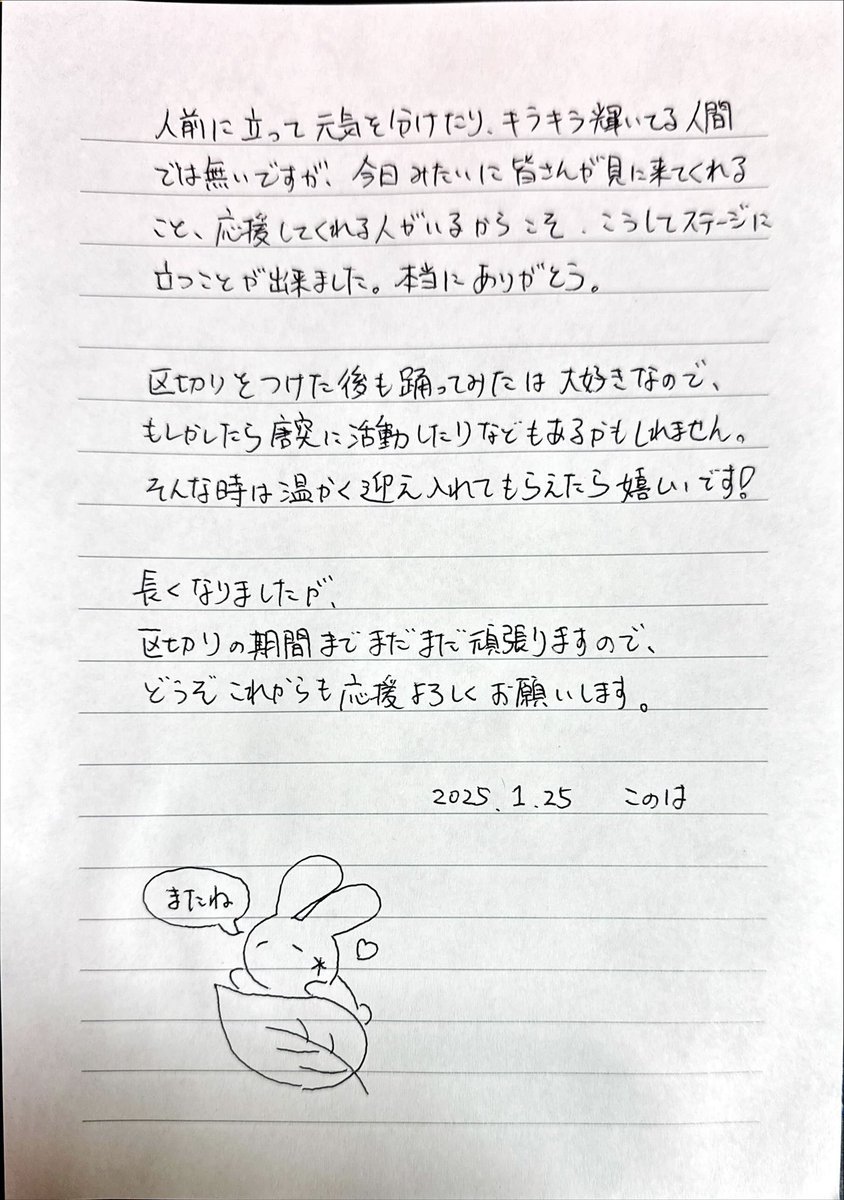 人前に立って元気を分けたり、キラキラ輝いてる人間
では無いですが、今日みたいに皆さんが見に来てくれる
こと、応援してくれる人がいるからこそ、こうしてステージに
立つことが出来ました。本当にありがとう。
区切りをつけた後も踊ってみたは大好きなので、
もしかしたら唐突に活動したりなどもあるかもしれません。
そんな時は温かく迎え入れてもらえたら嬉しいです!
長くなりましたが、
区切りの期間までまだまだ頑張りますので、
どうぞこれからも応援よろしくお願いします。
2025.1.25 このは
またね